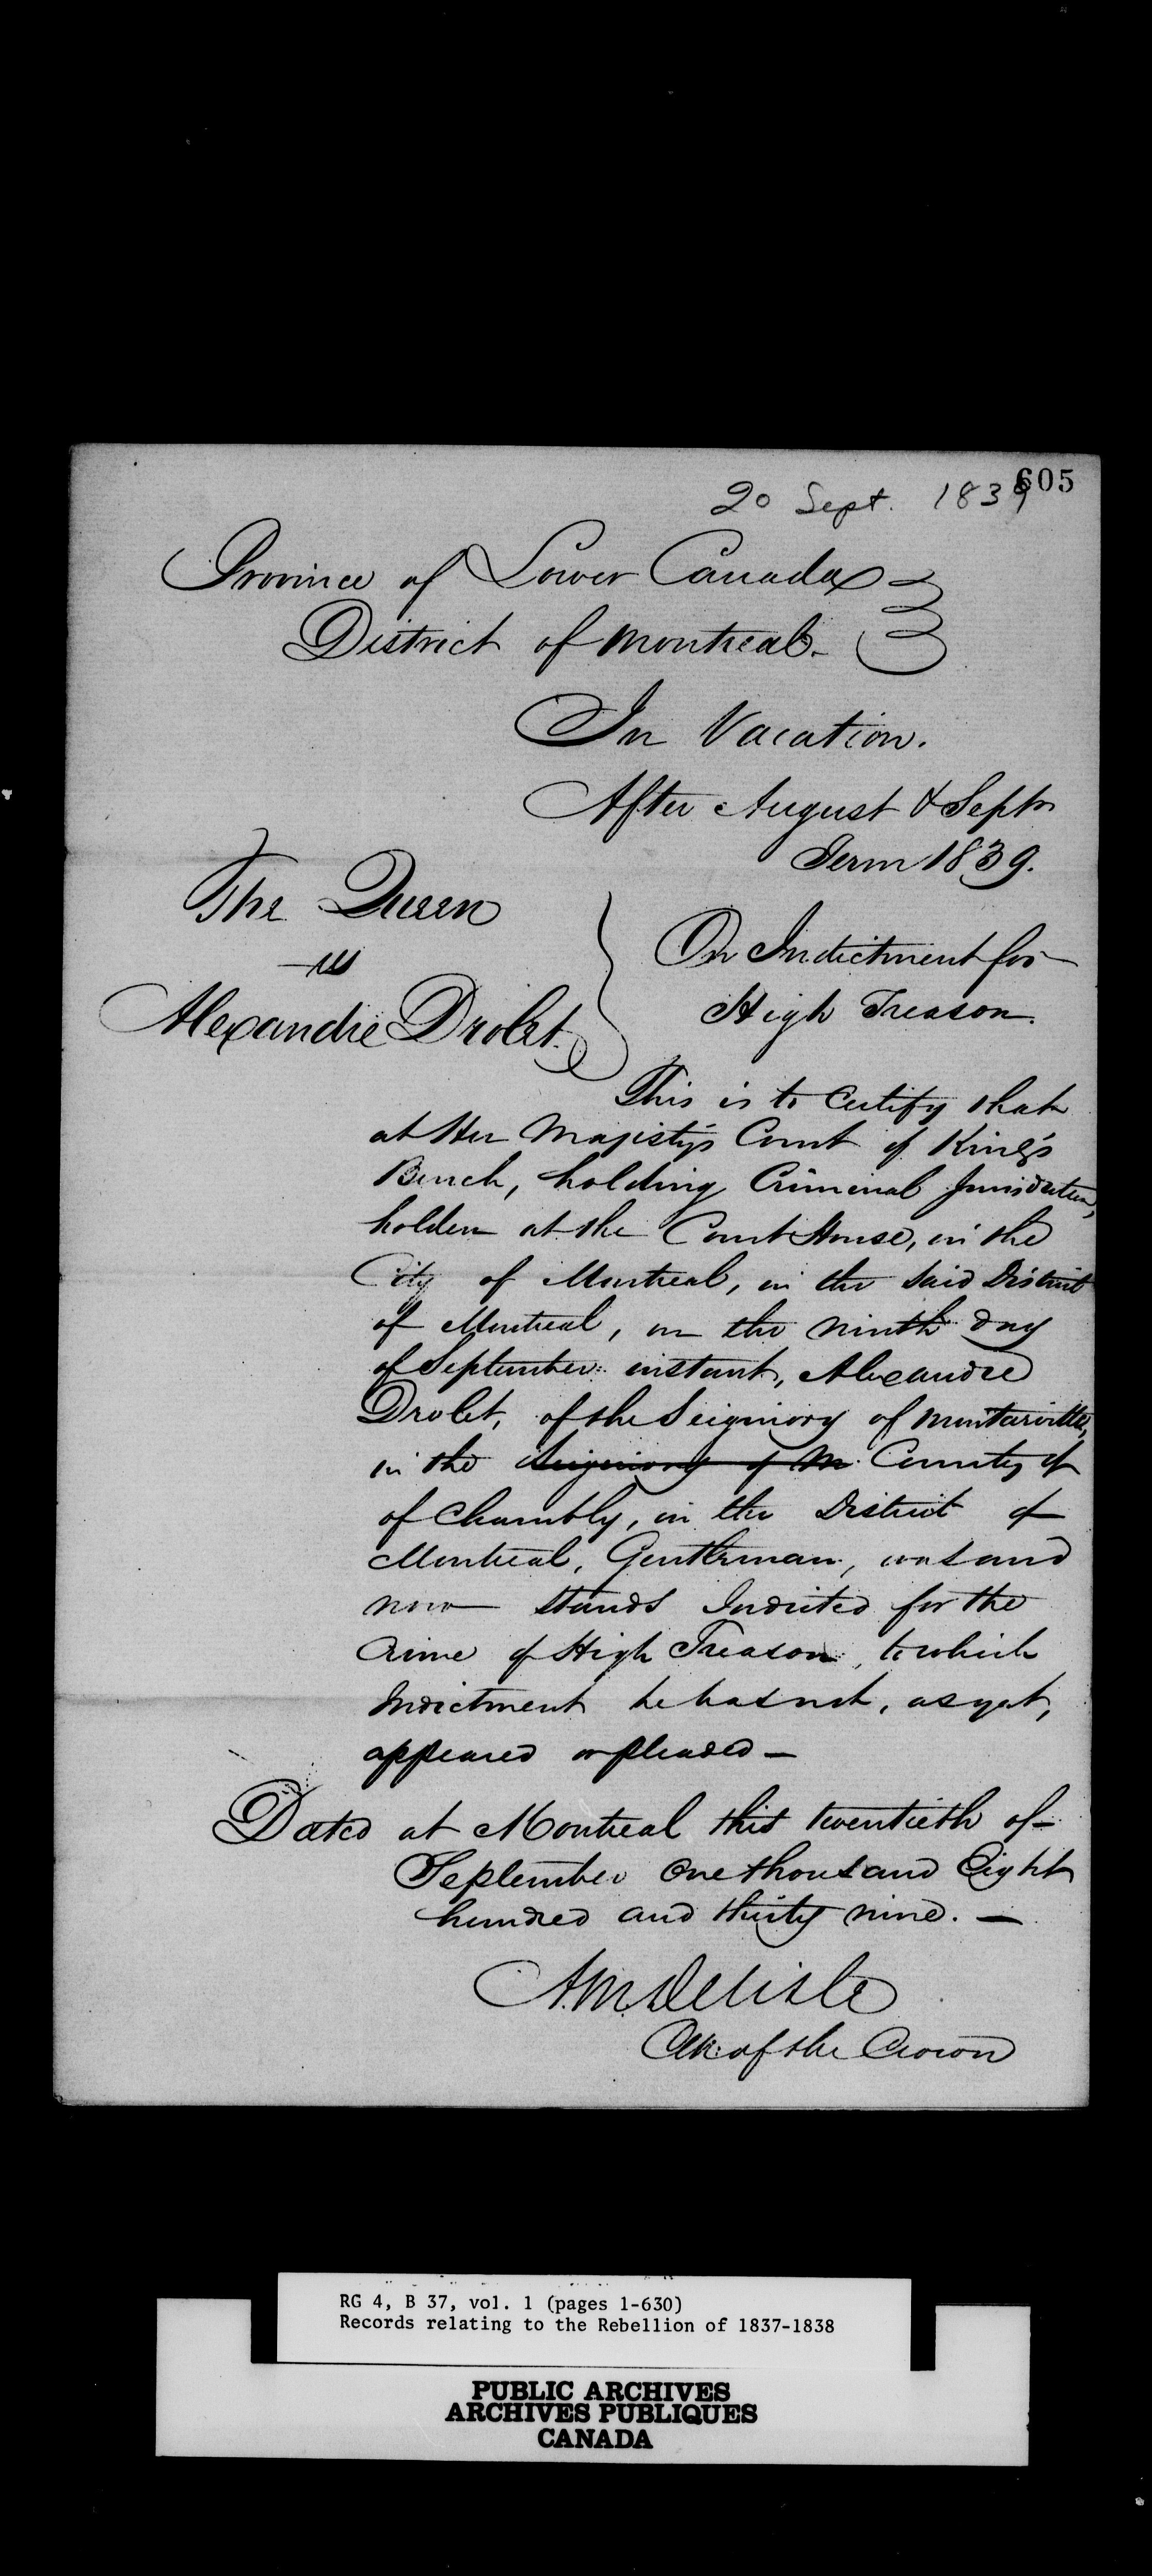 605
20 Sept. 1839
Province of Lower Canada
District of Montreal.
In Vacation.
After August & Septr
Term 1839.
The Queen
vs
Alexandre Drolet.
On Indictment for
High Treason.
This is to Certify that
at Her Majesty's Court of King's
Bench, holding Criminal Jurisdiction,
holden at the Court House, in the
City of Montreal, in the said District
of Montreal, on the ninth day
of September instant, Alexandre
Drolet, of the Seigniory of Montarville,
in the Seigniory of M County of
of Chambly, in the District of
Montreal, Gentleman, was and
now stands Indicted for the
Crime of High Treason, to which
Indictment he has not, as yet,
appeared or pleaded —
Dated at Montreal this twentieth of
September One thousand Eight
hundred and thirty nine. —
A.M. Delisle
Clk: of the Crown
RG 4, B 37, vol. 1 (pages 1-630)
Records relating to the Rebellion of 1837-1838
PUBLIC ARCHIVES
ARCHIVES PUBLIQUES
CANADA